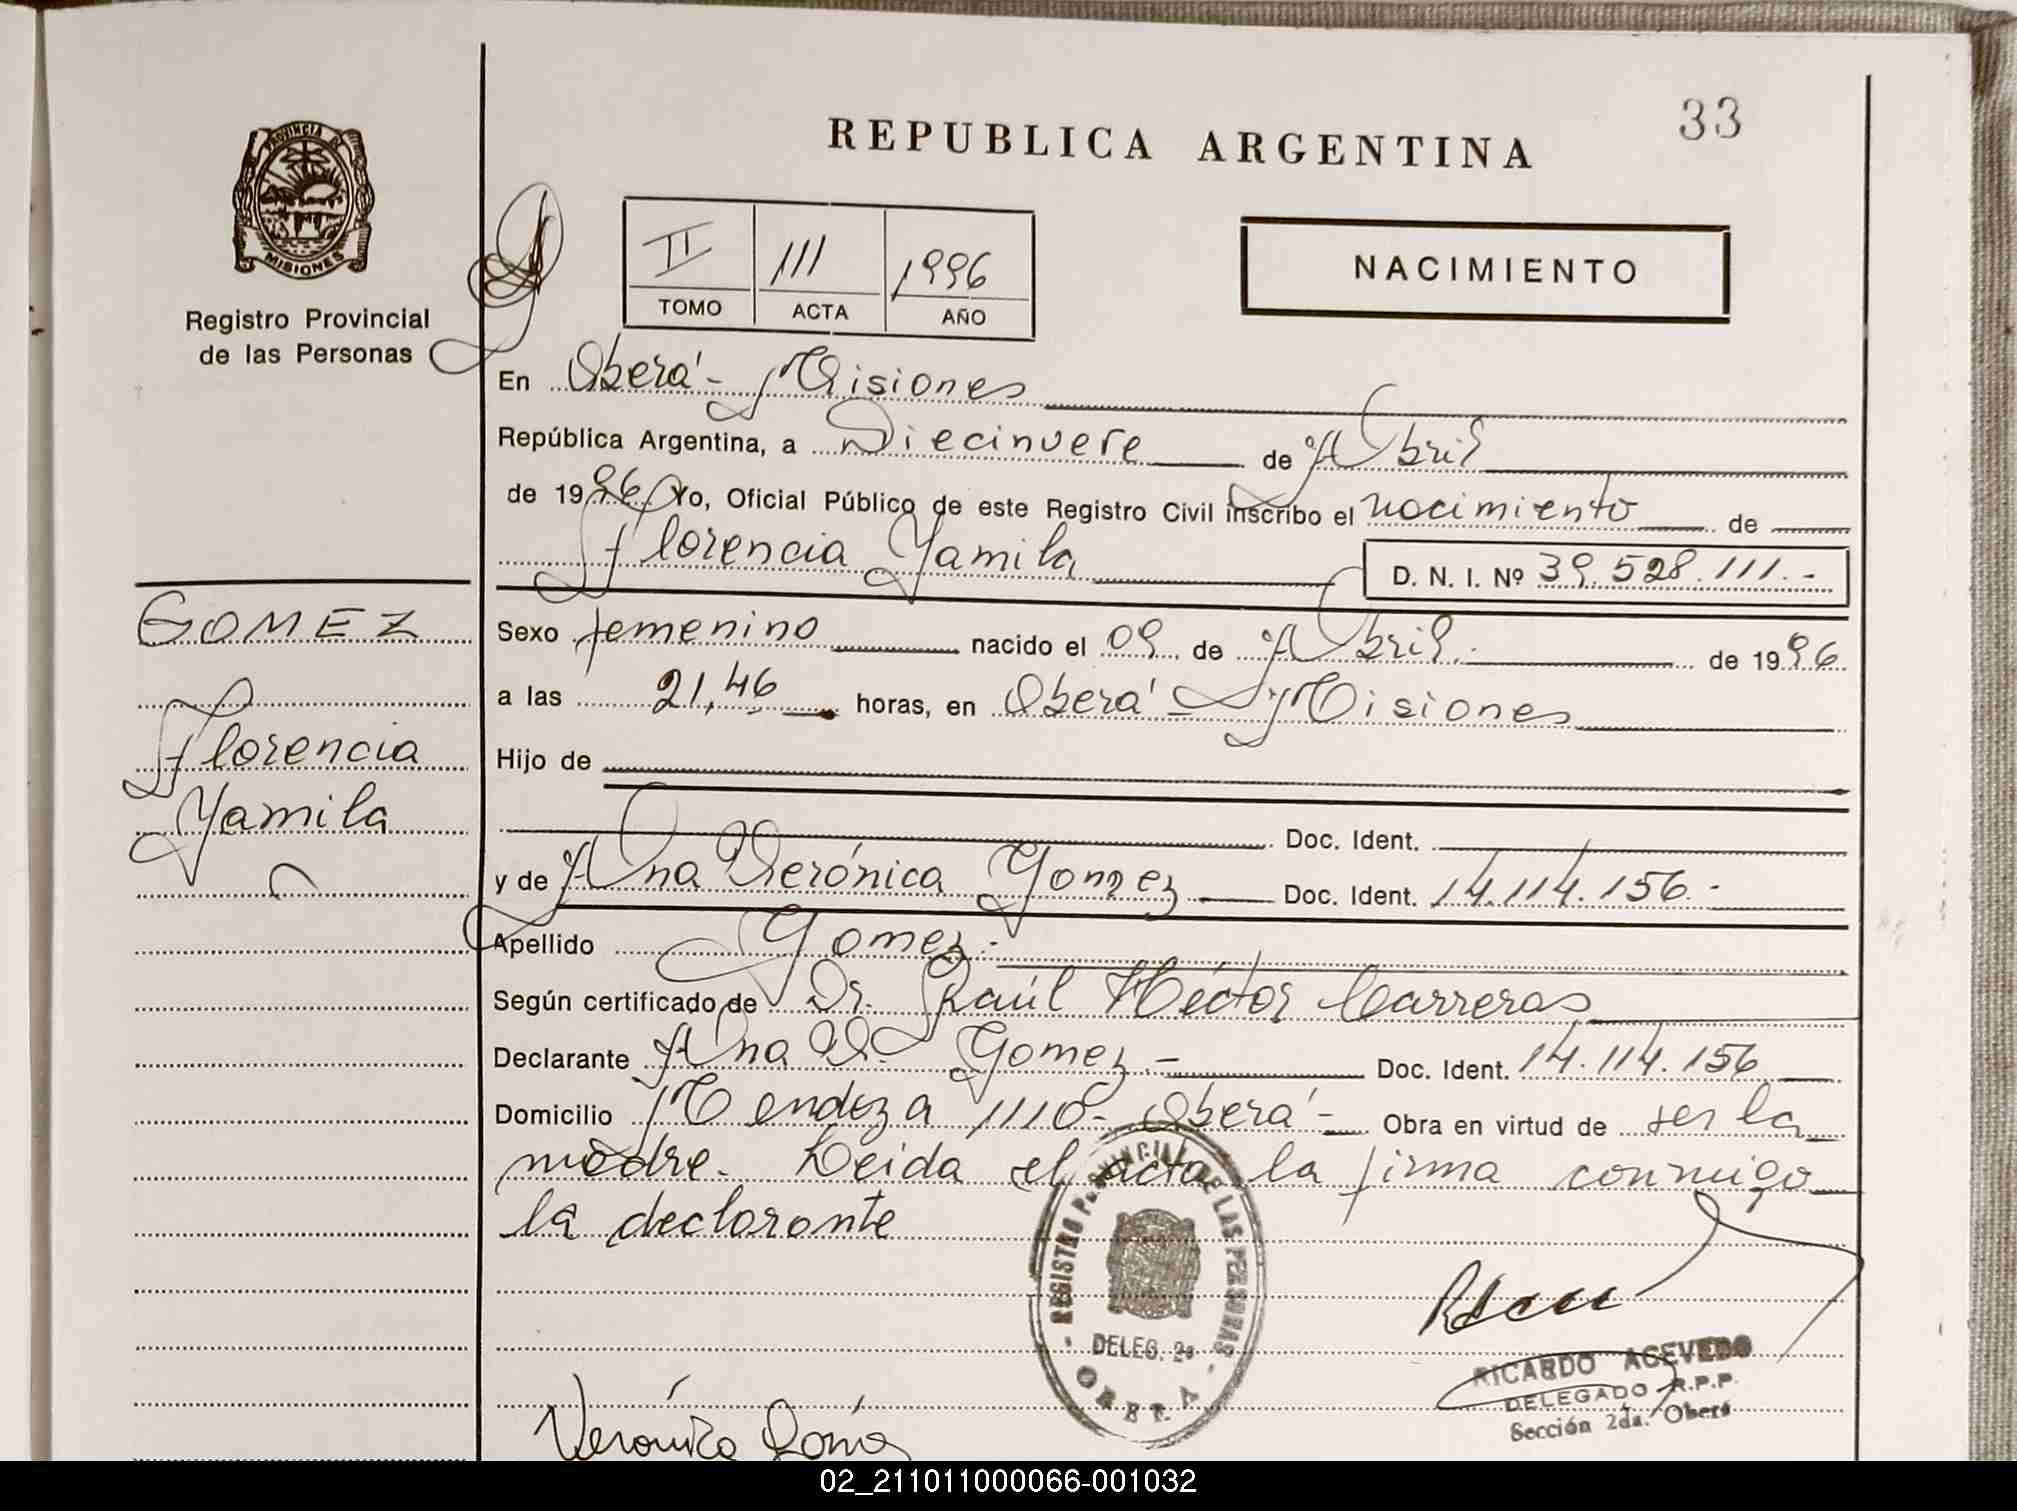 33
REPUBLICA ARGENTINA
PROVINCIA DE
MISIONES
Registro Provincial
de las Personas
II 111 1996
TOMO ACTA AÑO
NACIMIENTO
En Oberá - Misiones
República Argentina, a Diecinueve de Abril
de 1996 Yo, Oficial Público de este Registro Civil inscribo el nacimiento de
Florencia Yamila D. N. I. Nº 39.528.111.-
GOMEZ
Florencia
Yamila
Sexo femenino nacido el 09 de Abril.- de 1996
a las 21,46 horas, en Oberá - Misiones
Hijo de
Doc. Ident.
y de Ana Verónica Gomez Doc. Ident. 14.114.156.-
Apellido Gomez.-
Según certificado de Dr. Raúl Héctor Carreras
Declarante Ana V. Gomez.- Doc. Ident. 14.114.156
Domicilio Mendoza 1110- Oberá- Obra en virtud de ser la
madre. Leida el acta la firma conmigo
la declarante
REGISTRO PROVINCIAL DE LAS PERSONAS
DELEG. 2a
OBERA
RICARDO ACEVEDO
DELEGADO R.P.P.
Sección 2da. Oberá
Verónica
02_211011000066-001032